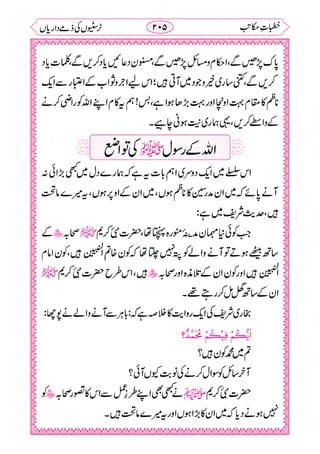 خطباتِ مکاتب
۲۰۵
ٹرسٹیوں کی ذمے داریاں
پاک پڑھیں گے، احکام و مسائل پڑھیں گے، مسنون دعائیں یاد کریں گے، کلمات یاد
کریں گے، کتنی ساری نیکیاں وجود میں آتی ہیں؛ اس لیے اجر و ثواب کے اعتبار سے ایک
ناظم کا مقام بہت اونچا اور بہت بڑھا ہوا ہے، بس، اہم! ہم یہ کام اپنے اللہ کو راضی کرنے
کے واسطے کریں، یہی ہماری نیت ہونی چاہیے۔
اللہ کے رسول ﷺ کی تواضع
اس سلسلے میں ایک دوسری اہم بات یہ ہے کہ ہمارے دل میں کبھی بھی بڑائی نہ
آنے پائے کہ میں ان مدرسین کا ناظم ہوں، میں ان کے اوپر ہوں، یہ میرے ماتحت
ہیں، حدیث شریف میں ہے:
جب کوئی نیا مہمان مدینۂ منورہ پہنچتا تھا، حضرت نبیٔ کریم ﷺ صحابہ کے
ساتھ بیٹھے ہوتے تو آنے والے کو پتہ نہیں چلتا تھا کہ خاتم الانبیین کون ہیں، امام
الانبیین کون ہیں اور کون ان کے تلامذہ اور صحابہ ہیں، اس طرح حضرت نبیٔ کریم ﷺ
ان کے ساتھ گھل مل کر رہتے تھے۔
بخاری شریف کی ایک روایت کا خلاصہ ہے کہ باہر سے آنے والے نے پوچھا:
أَيُّكُمْ فِيكُمْ مُحَمَّدٌ؟
تم میں محمد کون ہیں؟
آخر سائل کو سوال کرنے کی نوبت کیوں آئی؟
حضرت نبیٔ کریم ﷺ نے کبھی بھی اپنے طرزِ عمل سے اس کا تصور صحابہ کو
نہیں ہونے دیا کہ میں ان کا بڑا ہوں اور یہ میرے ماتحت ہیں۔